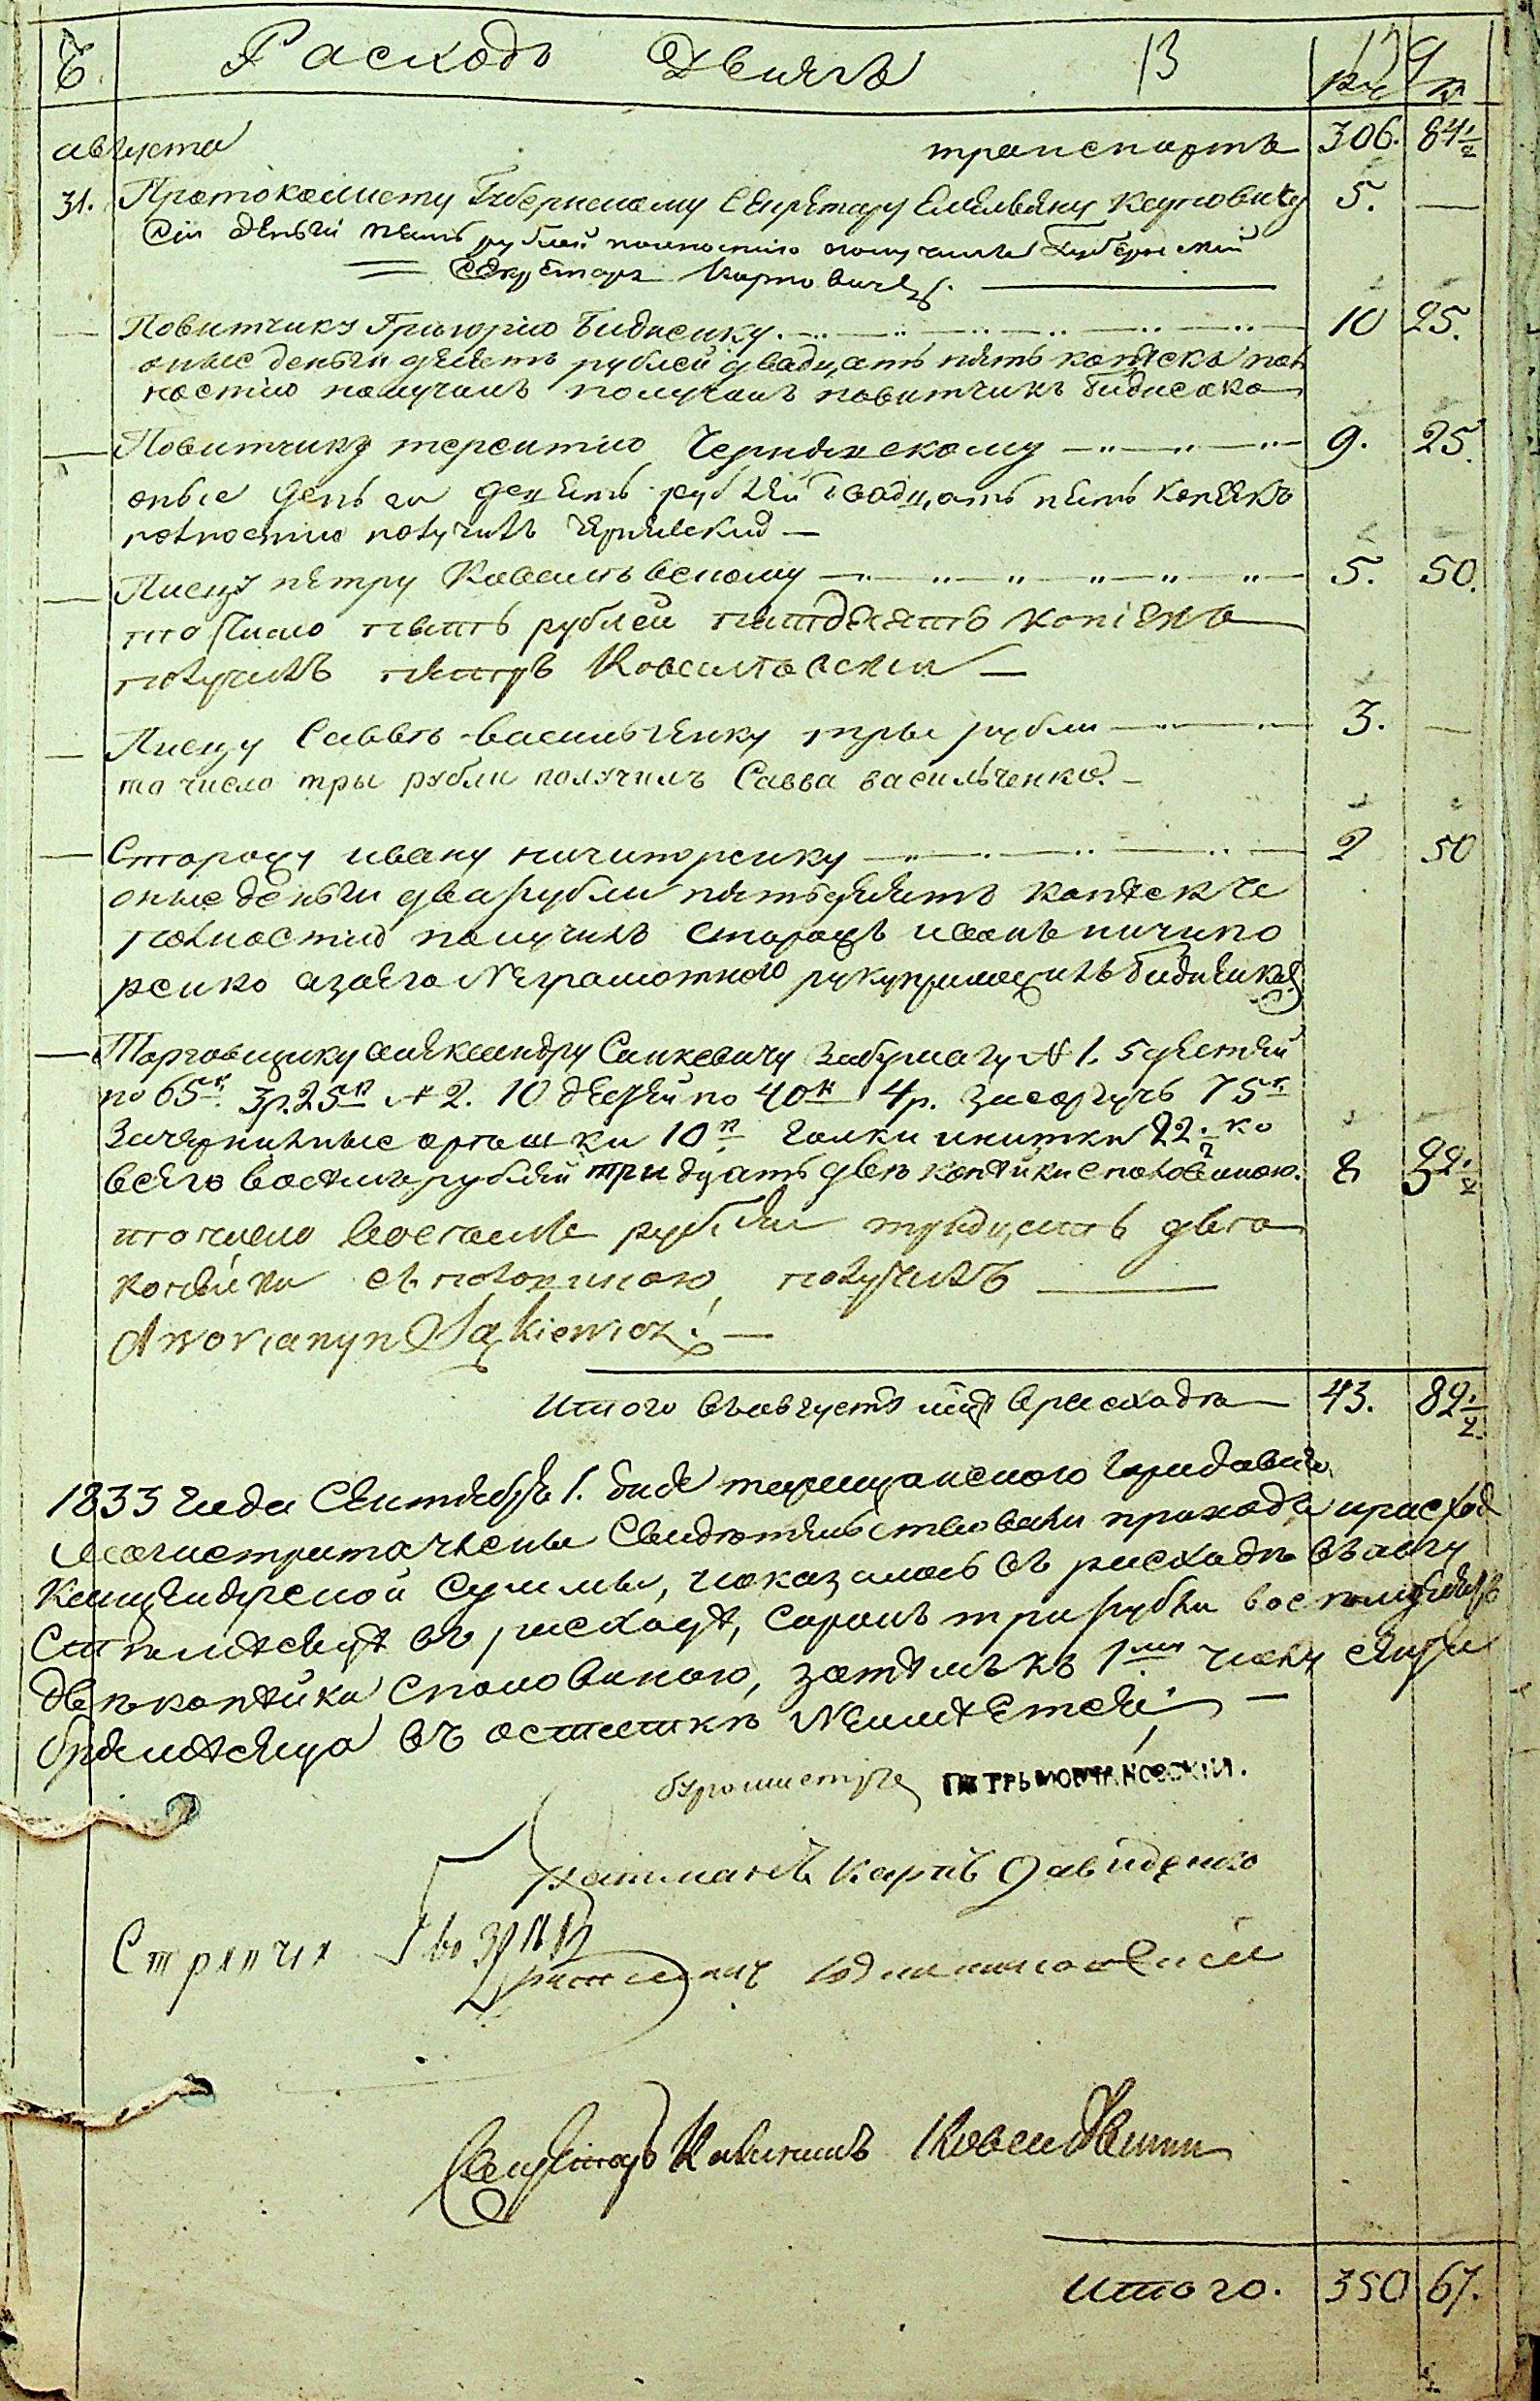 Расходъ Денегъ 13 19
ру к
августа транспортъ 306. 84 1/2
31. Протоколисту Губернскому Секретарю Емельяну Карповичу 5. —
Сіи деньги пять рублей полностію получилъ Губернскій
Секретарь Карповичъ.
— Повитчику Григорію Бидненку 10 25.
оные деньги десять рублей двадцать пять копѣекъ пол
ностію получилъ повитчикъ Бидненко
— Повитчику терентію Чернявскому 9. 25.
оные деньги девять рублей двадцать пять копѣекъ
полностію получилъ Чернявский —
— Писцу петру Ковальевскому 5. 50.
то число пять рублей пятдесятъ копіекъ
получилъ петръ —
— Писцу Саввѣ васильченку тры рубли 3. —
то число тры рубли получилъ Савва васильченко. —
— Сторожу ивану ничипоренку 2 50
оные деньги два рубли пятьдесятъ копѣекъ
полностію получилъ сторожъ иванъ ничипо
ренко а за его неграмотного руку приложилъ Бидненко
— Торговщику александру Санкевичу за бумагу № 1. 5 дестей
по 65к. 3р. 25к № 2. 10 дестей по 40к 4р. за сургучъ 75к.
за чернильные орешки 10к голки и нитки 22 1/2 ко
всего восемъ рублей тридцать двѣ копѣйки с половиною. 8 32 1/2
то число восемъ рублей тридцать два
копѣйки съ половиною получилъ
dworianyn Sąkiewicz. —
Итого въ августѣ мцѣ в расходѣ 43. 82 1/2
1833 года Сентября 1. дня Городового
Магистрата члены Свидѣтельствовали приходъ и расход
Канцелярской Суммы, показалось въ расходѣ въ авгу
стѣ мѣсяцѣ въ расходѣ, сорокъ три рубли восемдесятъ
двѣ копѣйки с половиною, затѣмъ къ 1му числу сентя
бря мѣсяца въ остаткѣ неимѣется. —
бургмистръ ПЕТРЪ МОВЧАНОВСКІЙ.
Ратманъ Карпъ Давиденко
Стряпчи
Ратманъ
Секретарь
Итого. 350 67.